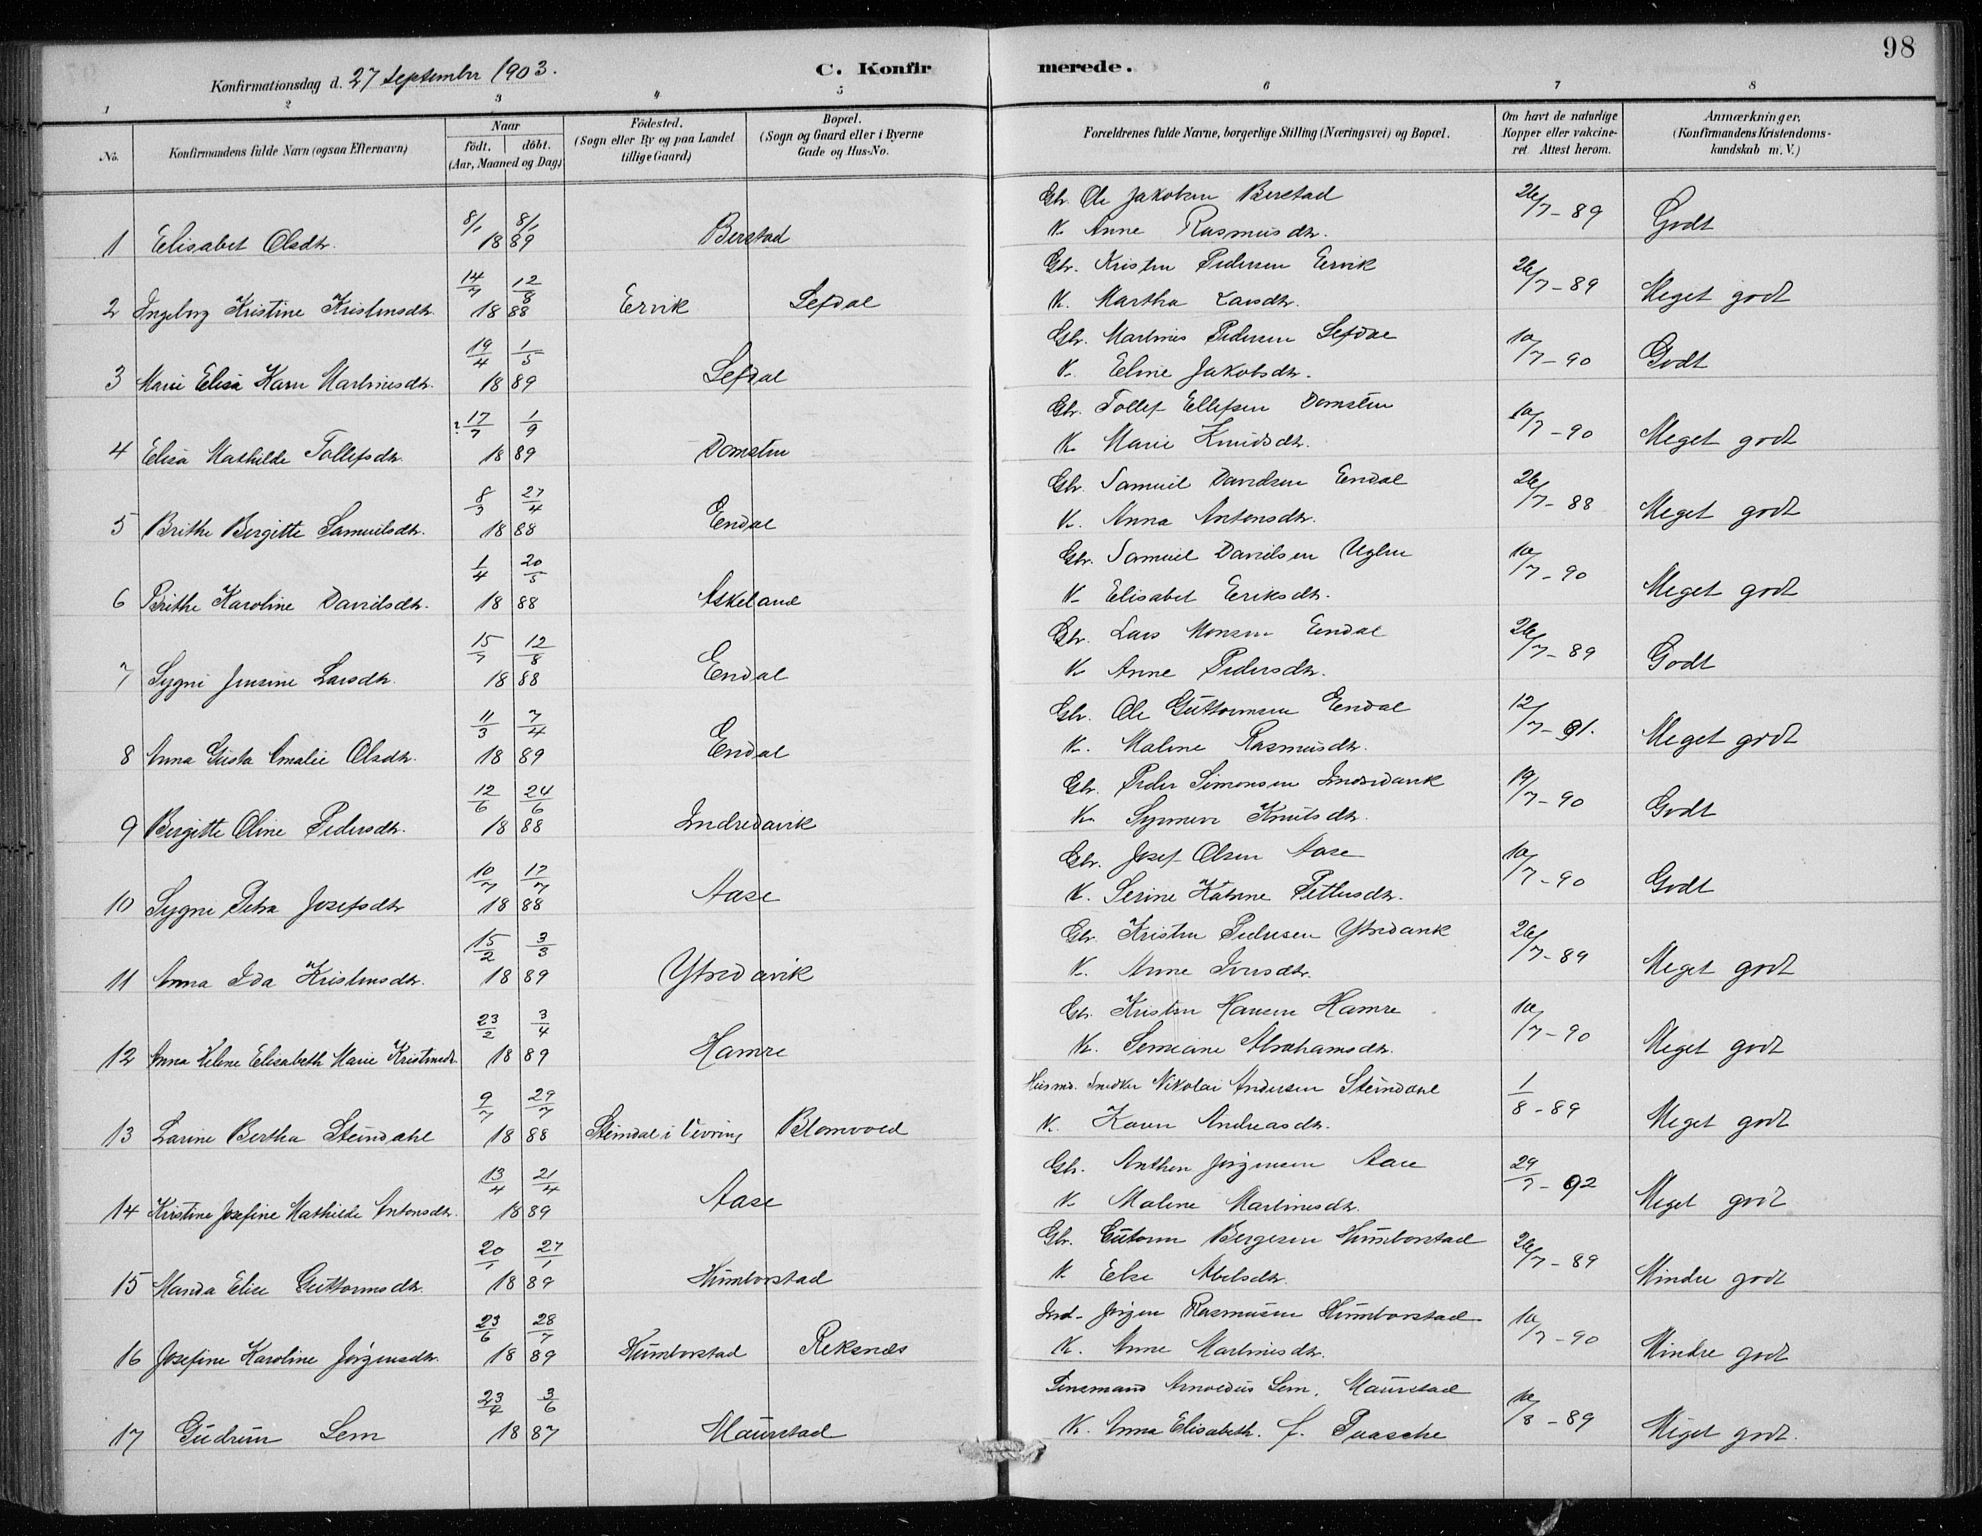 98
Konfirmationsdag d. 27 September 1903.
C. Konfirmerede.
1 2 3 4 5 6 7 8
No.
Konfirmandens fulde Navn (ogsaa Efternavn)
Naar
födt. döbt.
(Aar, Maaned og Dag)
Födested.
(Sogn eller By og paa Landet tillige Gaard)
Bopæl.
(Sogn og Gaard eller i Byerne Gade og Hus-No.
Forældrenes fulde Navne, borgerlige Stilling (Næringsvei) og Bopæl.
Om havt de naturlige Kopper eller vakcineret Attest herom.
Anmærkninger.
(Konfirmandens Kristendomskundskab m. V.)
1 Elisabet Olsdtr. 8/1 8/1 1889 Berstad Gbr. Ole Jakobsen Berstad 26/7-89 Godt
K. Anne Rasmusdtr.
2 Ingeborg Kristine Kristensdtr. 14/7 12/8 1888 Ervik Lefdal Gbr. Kristen Pedersen Ervik 26/7-89 Meget godt
K. Martha Larsdtr.
3 Marie Elisa Karn Martinusdtr. 19/4 1/5 1889 Lefdal Gbr. Martinus Pedersen Lefdal 10/7-90 Godt
K. Eline Jakobsdtr.
4 Elisa Mathilde Tollefsdtr. ?17/7 1/9 1889 Domsten Gbr. Tollef Ellefsen Domsten 10/7-90 Meget godt
K. Marie Knudsdtr.
5 Brithe Bergitte Samuelsdtr. 8/3 27/4 1888 Endal Gbr. Samuel Davidsen Endal 26/7-88 Meget godt
K. Anna Antonsdtr.
6 Brithe Karoline Davidsdtr. 1/4 20/5 1888 Askeland Gbr. Samuel Davidsen Uglen 10/7-90 Meget godt
K. Elisabet Eriksdtr.
7 Sygni Jensine Larsdtr. 15/7 12/8 1888 Endal Gbr. Lars Monsen Endal 26/7-89 Godt
K. Anne Pedersdtr.
8 Anna Gusta Amalie Olsdtr. 11/3 7/4 1889 Endal Gbr. Ole Guttormsen Endal 12/7-91. Meget godt
K. Malene Rasmusdtr.
9 Bergitte Oline Pedersdtr. 12/6 24/6 1888 Indredavik Gbr. Peder Simonsen Indredavik 19/7-90 Godt
K. Synneve Knutsdtr.
10 Sygni Petra Josefsdtr 10/7 17/7 1888 Aase Gbr. Josef Olsen Aase 10/7-90 Godt
K. Serine Katrine Pettersdtr.
11 Anna Ida Kristensdtr. 15/2 3/3 1889 Ytredavik Gbr. Kristen Pedersen Ytredavik 26/7-89 Meget godt
K. Anne Iversdtr.
12 Anna Helene Elisabeth Marie Kristensdtr 23/2 3/4 1889 Hamre Gbr. Kristen Hansen Hamre 10/7-90 Meget godt
K. Semeane Abrahamsdtr.
13 Larine Bertha Steindahl 9/7 29/7 1888 Steindal i Vevring Blomvold Husmd. Snedker Nikolai Andersen Steindahl 1/8-89 Meget godt
K. Karen Andreasdtr.
14 Kristine Josefine Mathilde Antonsdtr. 13/4 21/4 1889 Aase Gbr. Anthon Jørgensen Aase 29/7-92 Meget godt
K. Malene Martinusdtr.
15 Manda Elise Guttormsdtr. 20/1 27/1 1889 Humborstad Gbr. Gutorm Bergesen Humborstad 26/7-89 Mindre godt
K. Else Abelsdtr.
16 Josefine Karoline Jörgensdtr. 23/6 28/7 1889 Humborstad Reksnes Ind. Jörgen Rasmussen Humborstad 10/7-90 Mindre godt
K. Anne Martinusdtr.
17 Gudrun Lem 23/4 3/6 1887 Maurstad Lensmand Arnoldus Lem, Maurstad 10/8-89 Meget godt.
K. Anna Elisabeth f. Paasche